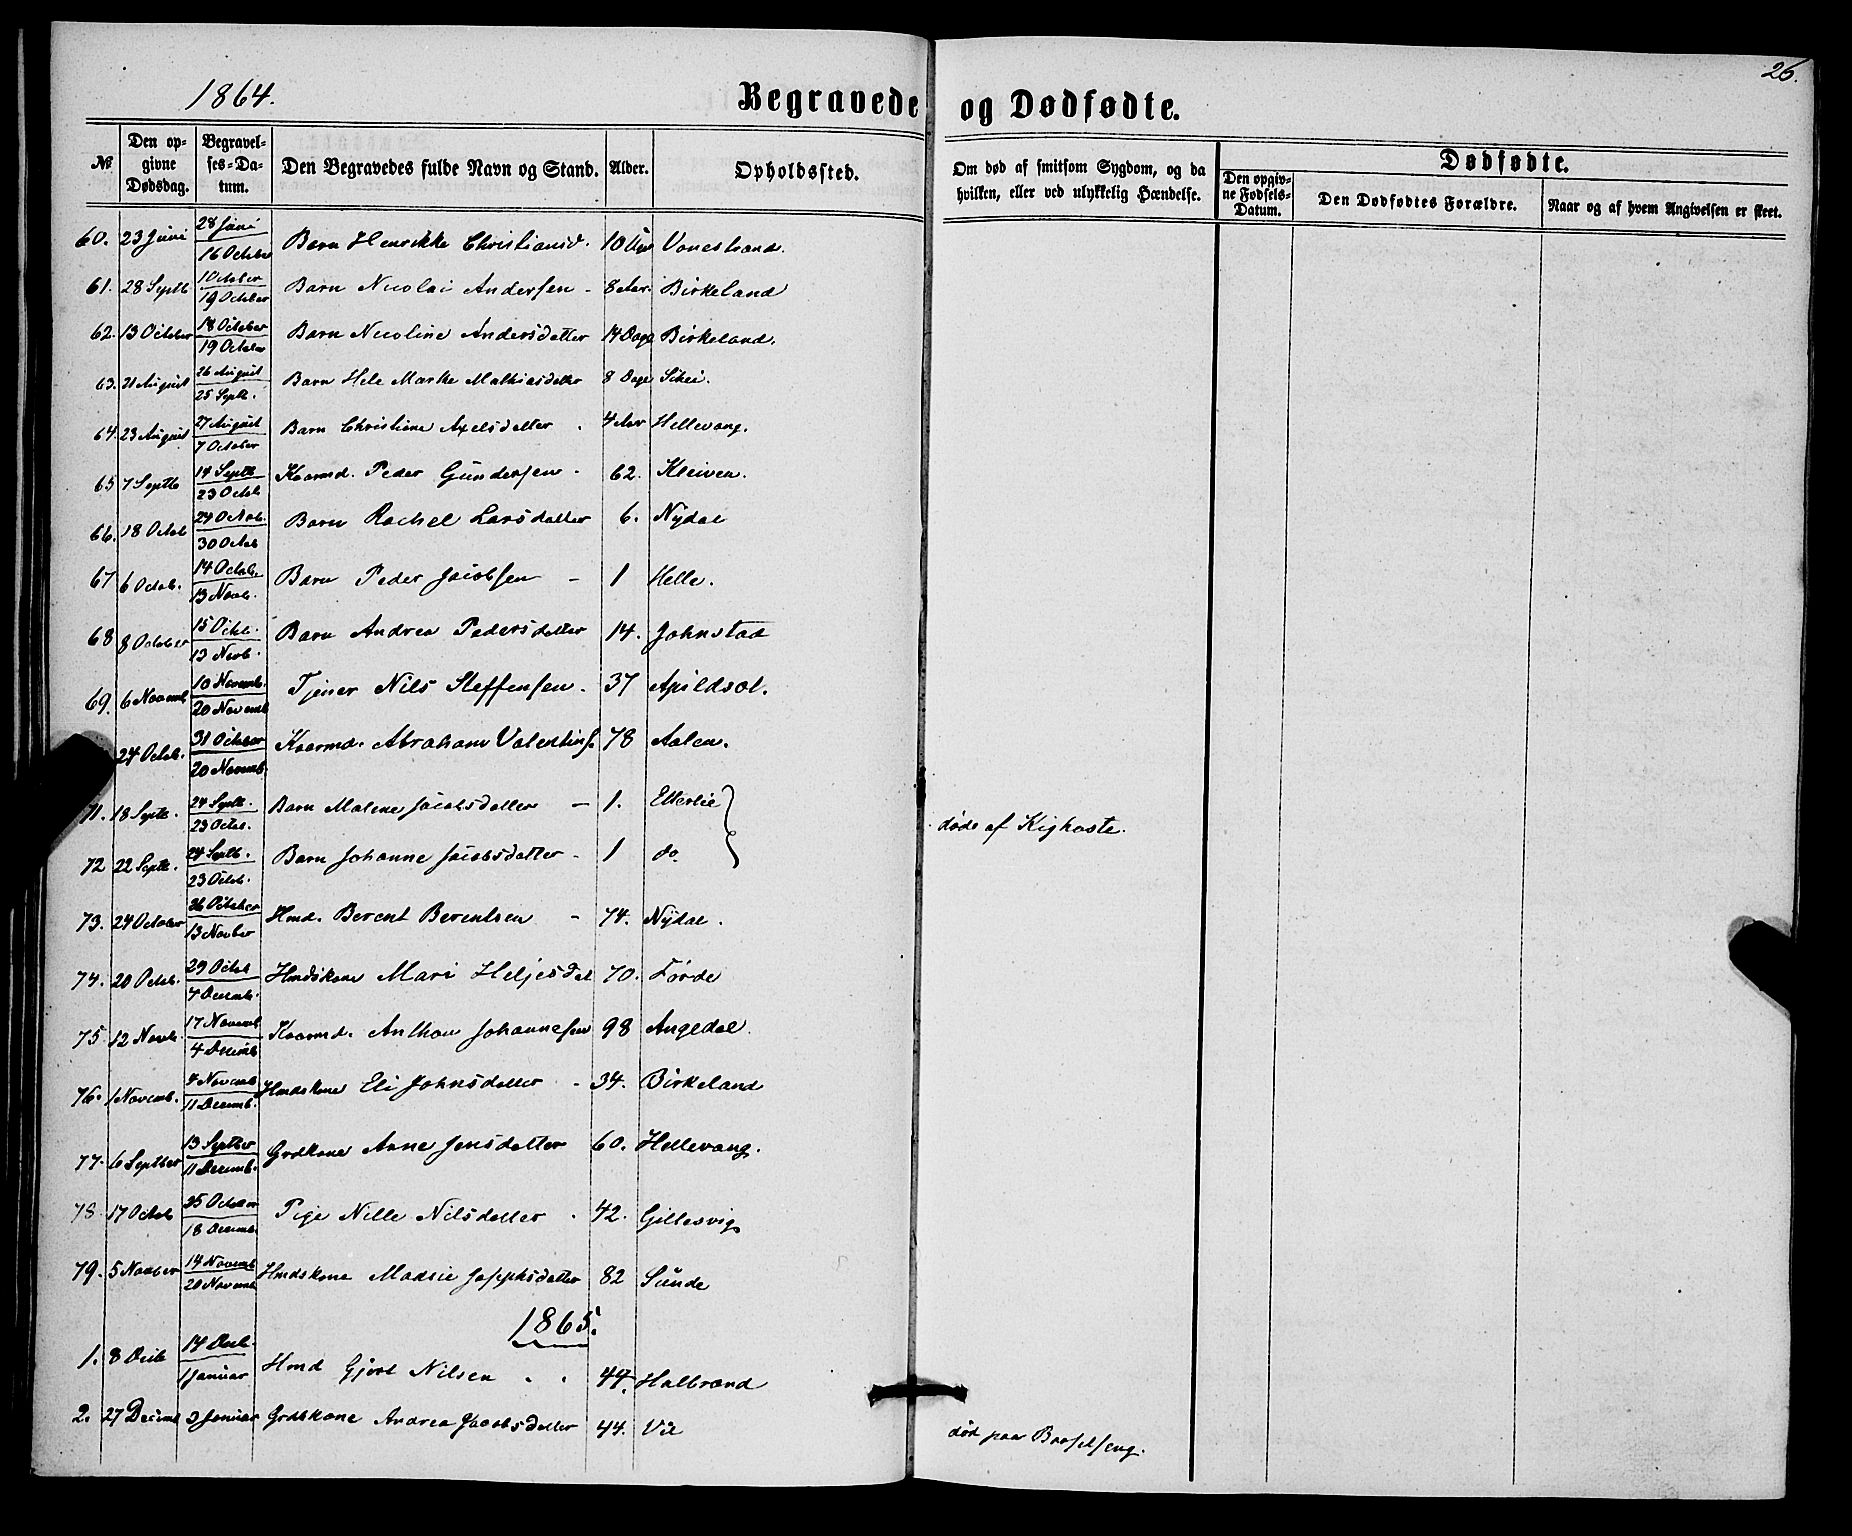 26.
1864.
Begravede og Dødfødte.
№
Den opgivne Dødsdag.
Begravelses-Datum.
Den Begravedes fulde Navn og Stand.
Alder.
Opholdssted.
Om død af smitsom Sygdom, og da hvilken, eller ved ulykkelig Hændelse.
Dødfødte.
Den opgivne Fødsels-Datum.
Den Dødfødtes Forældre.
Naar og af hvem Angivelsen er skeet.
60. 23 Juni 28 Juni / 16 October Barn Henrikke Christiansd. 10 Uger Vonestrand.
61. 28 Septb 1 October / 19 October Barn Nicolai Andersen - 8 Aar. Birkeland
62. 13 October 18 October / 19 October Barn Nicoline Andersdatter 14 Dage Birkeland.
63. 21 August 26 August / 25 Septb. Barn Hele Marke Mathiasdatter 8 Dage Sikei.
64. 23 August 27 August / 7 October Barn Christine Axelsdatter . 4 Aar Hellevang.
65 7 Septb 14 Septb / 23 Octob Kaarmd. Peder Gundersen - 62. Kleiven.
66. 18 Octob 24 Octob. / 30 Octob Barn Rachel Larsdatter 6. Nydal
67 6 Octob. 14 Octob. / 13 Novb. Barn Peder Jacobsen - 1 Helle.
68 8 October 15 Octb. / 13 Novb. Barn Andrea Pedersdatter 14. Johnstad
69. 6 Novemb 10 Novemb. / 20 Novemb Tjener Nils Steffensen. 37 Apildsol.
24 Octob. 31 October / 20 Novemb. Kaarmd. Abraham Valentins. 78 Aalen.
71. 18 Septb. 24 Septb. / 23 Octob. Barn Malene Jacobsdatter - 1. Etterlie
døde af Kighoste.
72 22 Septb. 24 Septb. / 23 Octob. Barn Johanne Jacobsdatter - 1 do
73. 24 October 26 October / 13 Novber Hmd. Berent Berentsen - 74. Nydal.
74. 20 Octob. 29 Octob / 4 Decemb. Hmdskone Mari Heljesdat 70. Førde
75 12 Novb. 17 Novemb / 4 Decemb Kaarmd. Anthon Johannesen 98 Angedal.
76. 1 Novemb. 4 Novemb / 11 Decemb. Hmdskone Eli Johnsdatter - 34. Birkeland
77. 6 Septber 13 Septber / 11 Decemb. Grdkone Anne Jensdatter 60. Hellevang.
78. 17 Octob 25 October / 18 Decemb. Pige Nille Nilsdatter . 42. Gillesvig
79. 5 November 14 Novemb / 20 Novemb Hmdskone Madsie Josephsdatter 82 Sunde
1865.
1. 8 Decb 14 Decb. / 1 Januar Hmd Gjert Nilsen . . 44. Halbrand
2. 27 Decemb 3 Januar Grdskone Andrea Jacobsdatter 44. Vie død paa Barselseng.